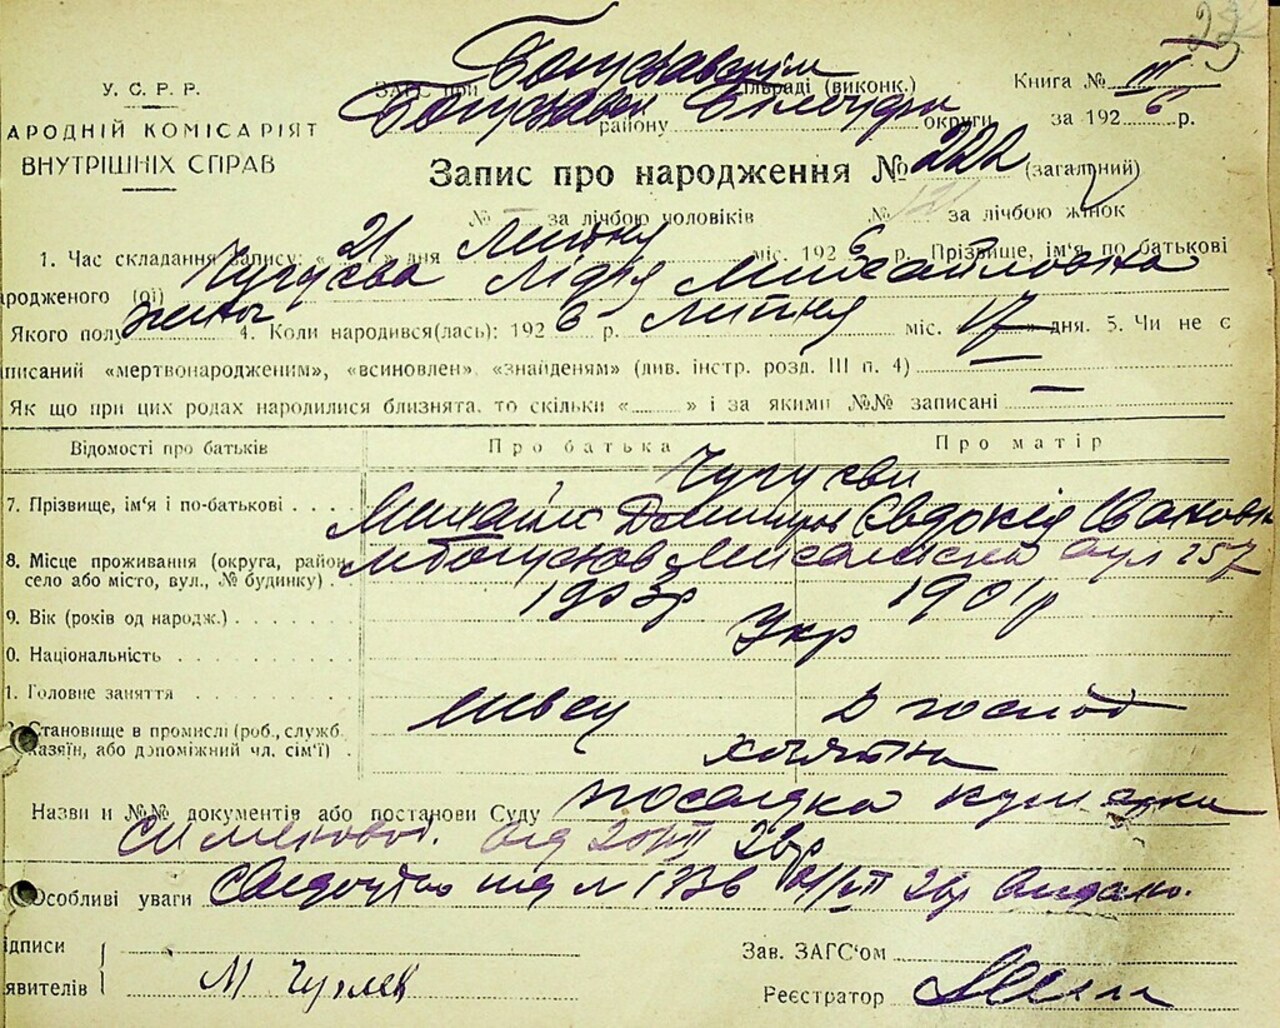 У. С. Р. Р.
АРОДНІЙ КОМІСАРІЯТ
ВНУТРІШНІХ СПРАВ
ЗАГС при Богуславськім сільраді (виконк.)
Богуслав району Білоцерк округи
Книга № III
за 1926 р.
Запис про народження № 222 (загальний)
№ — за лічбою чоловіків № за лічбою жінок
1. Час складання запису: « 21 » дня Липня міс. 1926 р. Прізвище, ім'я, по батькові
ародженого (ої) Чугуєва Лідія Михайловна
Якого полу жіноч 4. Коли народився(лась): 1926 р. липня міс. 17 дня. 5. Чи не є
писаний «мертвонародженим», «всиновлен», «знайденям» (див. інстр. розд. III п. 4) —
Як що при цих родах народилися близнята, то скільки « » і за якими №№ записані —
Відомості про батьків Про батька Про матір
Чугуєви
7. Прізвище, ім'я і по-батькові Михайло Дмитров Євдокія Іванови
8. Місце проживання (округа, район, село або місто, вул., № будинку) м Богуслав вул 257
9. Вік (років од народж.) 1903р 1901р
0. Національність Укр
1. Головне заняття швец Д господ
2. Становище в промислі (роб., служб., хазяїн, або допоміжний чл. сім'ї) хазяїн
Назви и №№ документів або постанови Суду
від 20/VII 26р
Особливі уваги 21/VII 26р видано.
ідписи
явителів М Чугаев
Зав. ЗАГС'ом
Реєстратор